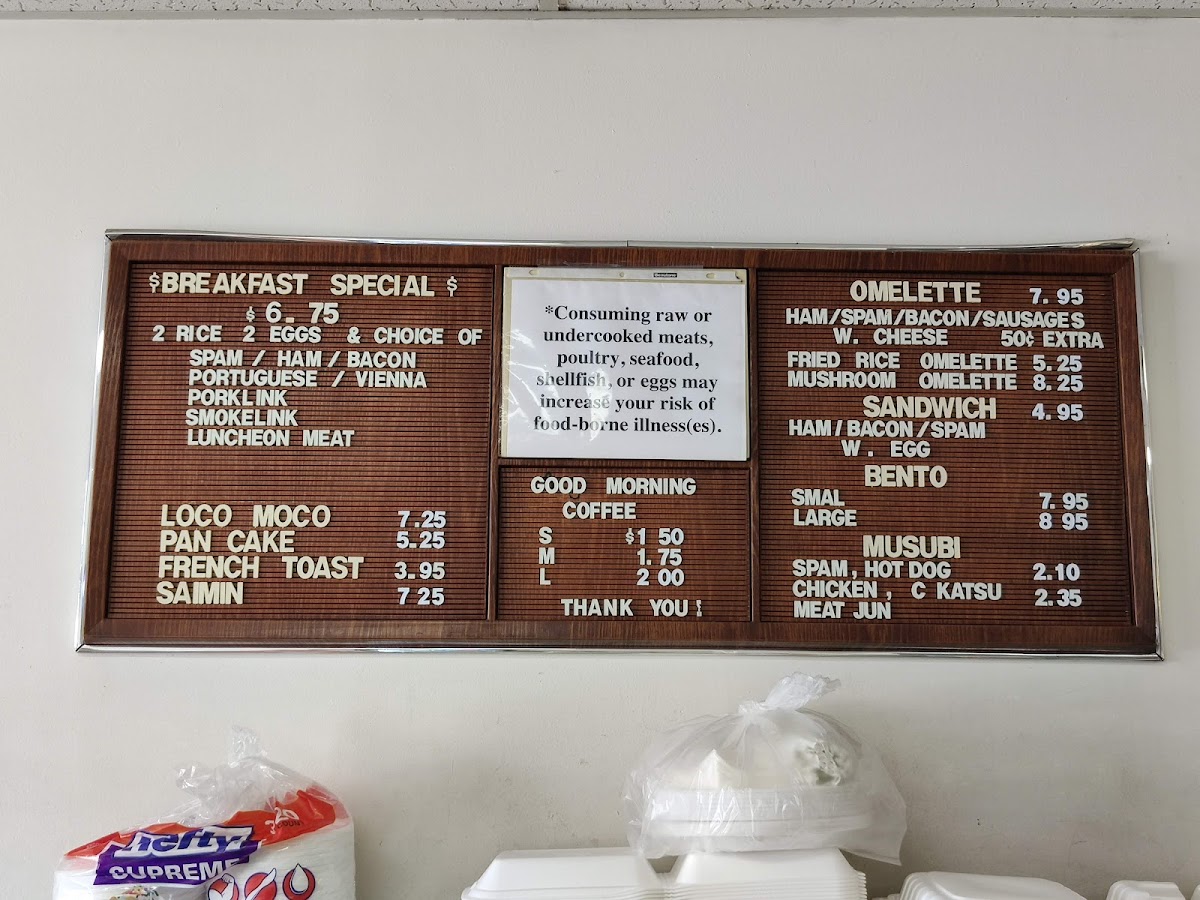 $BREAKFAST SPECIAL $
$6.75
2 RICE 2 EGGS & CHOICE OF
SPAM / HAM / BACON
PORTUGUESE / VIENNA
PORKLINK
SMOKELINK
LUNCHEON MEAT
LOCO MOCO 7.25
PAN CAKE 5.25
FRENCH TOAST 3.95
SAIMIN 7 25
*Consuming raw or
undercooked meats,
poultry, seafood,
shellfish, or eggs may
increase your risk of
food-borne illness(es).
GOOD MORNING
COFFEE
S $1 50
M 1.75
L 2 00
THANK YOU!
OMELETTE 7.95
HAM/SPAM/BACON/SAUSAGES
W. CHEESE 50¢ EXTRA
FRIED RICE OMELETTE 5.25
MUSHROOM OMELETTE 8.25
SANDWICH 4.95
HAM/BACON/SPAM
W. EGG
BENTO
SMAL 7.95
LARGE 8 95
MUSUBI
SPAM, HOT DOG 2.10
CHICKEN, C KATSU 2.35
MEAT JUN
hefty
SUPREME